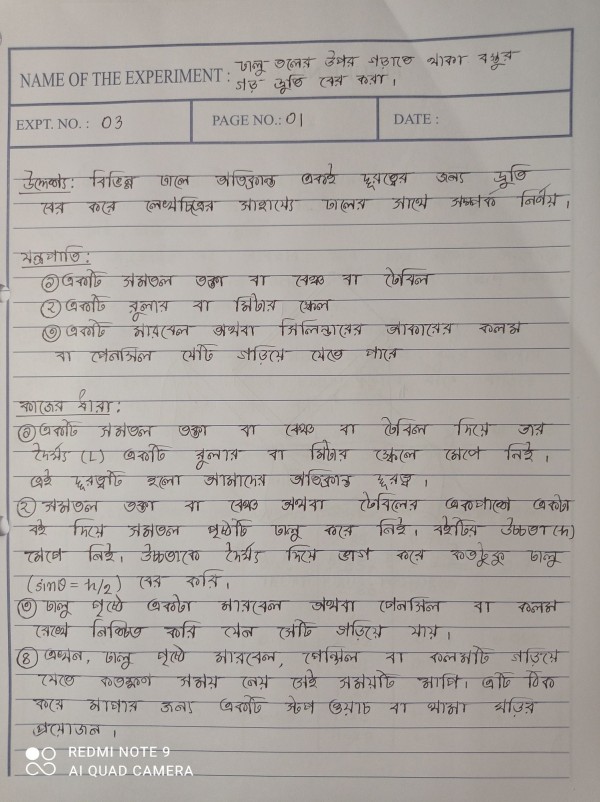 ঢালু তলের উপর গড়াতে থাকা বস্তুর
NAME OF THE EXPERIMENT : গড় দ্রুতি বের করা।
EXPT. NO. : 03 PAGE NO.: 01 DATE :
উদ্দেশ্য: বিভিন্ন ঢালে অতিক্রান্ত একই দূরত্বের জন্য দ্রুতি
বের করে লেখচিত্রের সাহায্যে ঢালের সাথে সম্পর্ক নির্ণয়।
যন্ত্রপাতি:
① একটি সমতল তক্তা বা বেঞ্চ বা টেবিল
② একটি রুলার বা মিটার স্কেল
③ একটি মারবেল অথবা সিলিন্ডারের আকারের কলম
বা পেনসিল যেটি গড়িয়ে যেতে পারে
কাজের ধারা:
① একটি সমতল তক্তা বা বেঞ্চ বা টেবিল দিয়ে তার
দৈর্ঘ্য (L) একটি রুলার বা মিটার স্কেলে মেপে নিই।
এই দূরত্বটি হলো আমাদের অতিক্রান্ত দূরত্ব।
② সমতল তক্তা বা বেঞ্চ অথবা টেবিলের একপাশে একটা
বই দিয়ে সমতল পৃষ্ঠটি ঢালু করে নিই। বইটির উচ্চতা (h)
মেপে নিই। উচ্চতাকে দৈর্ঘ্য দিয়ে ভাগ করে কতটুকু ঢালু
(sinθ = h/2) বের করি।
③ ঢালু পৃষ্ঠে একটা মারবেল অথবা পেনসিল বা কলম
রেখে নিশ্চিত করি যেন সেটি গড়িয়ে যায়।
④ এখন, ঢালু পৃষ্ঠে মারবেল, পেন্সিল বা কলমটি গড়িয়ে
যেতে কতক্ষণ সময় নেয় সেই সময়টি মাপি। এটি ঠিক
করে মাপার জন্য একটি স্টপ ওয়াচ বা থামা ঘড়ির
প্রয়োজন।
REDMI NOTE 9
AI QUAD CAMERA